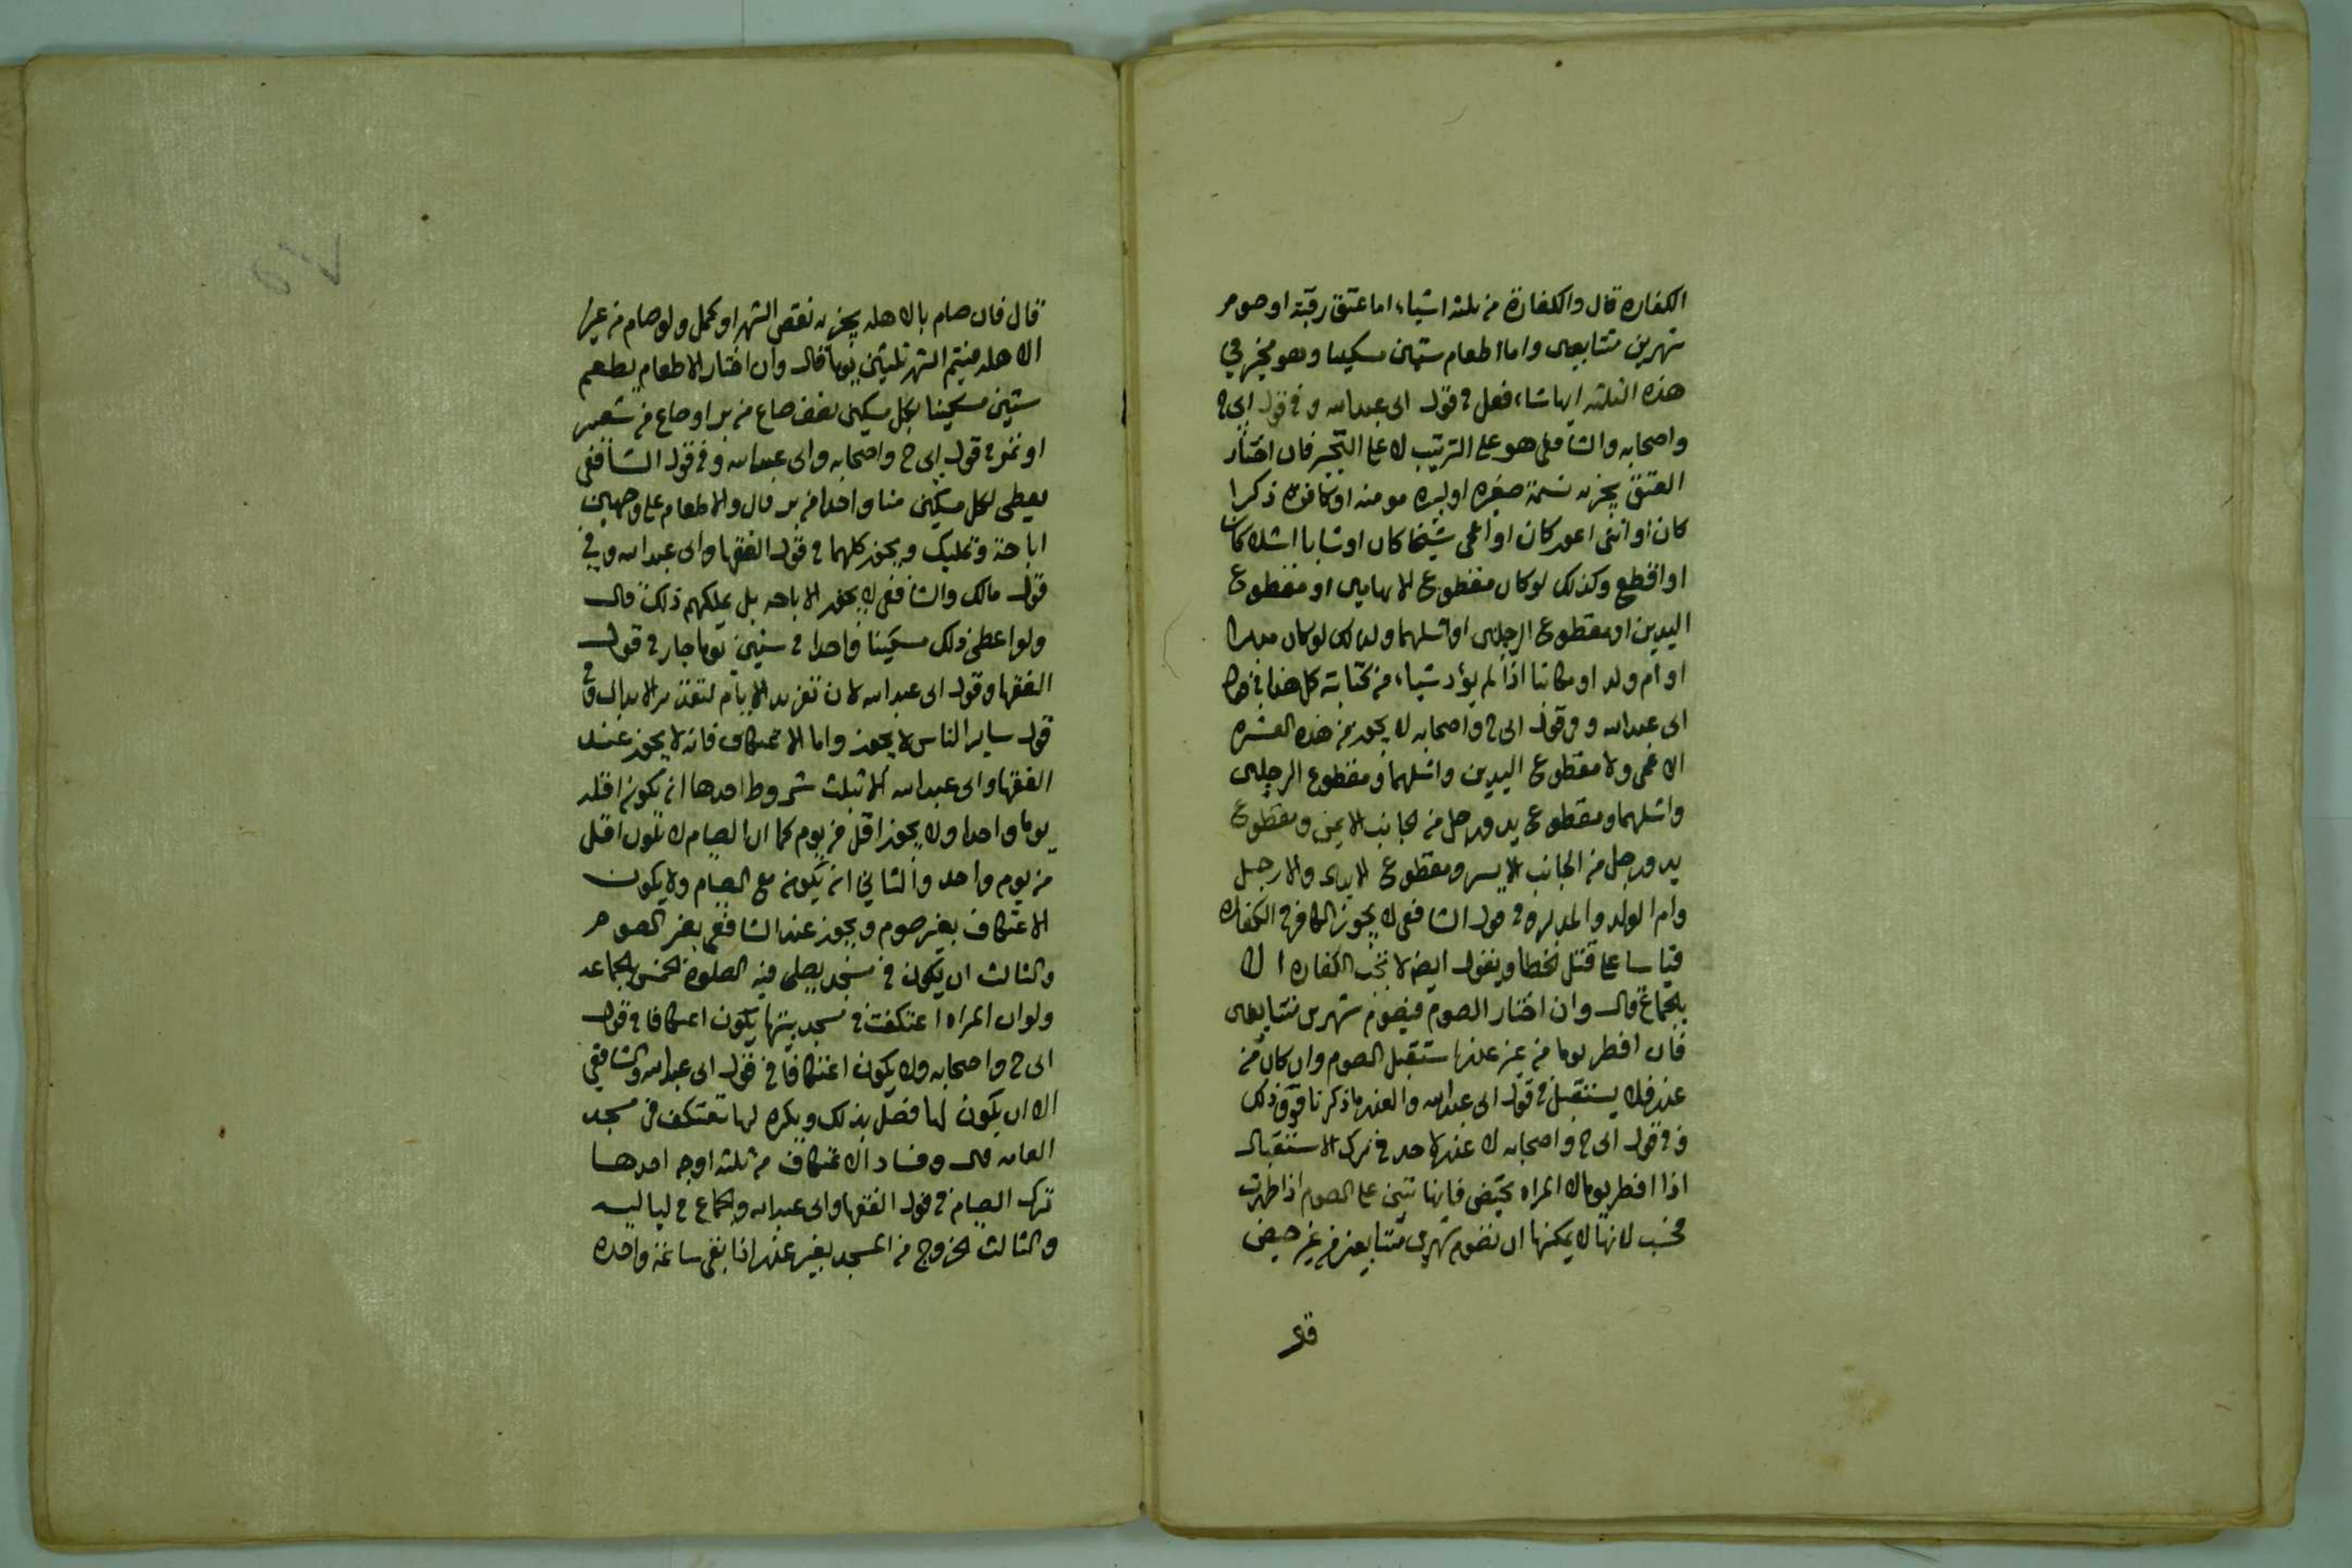 الكفاره قال والكفارة من ثلثه اشياء اما عتق رقبة او صوم
شهرين متتابعين واما اطعام ستين مسكينا وهو مخير في
هذه الثلثه ايها شاء فعل في قول ابى عبدالله و في قول ابى ح
واصحابه والشافعى هو على الترتيب لا على التخير فان اختار
العتق يجزيه نسمة صغيره او كبيره مومنه او كافره ذكرا
كان او انثى اعور كان او اعمى شيخا كان او شابا اشلا كان
او اقطع وكذلك لو كان مقطوع الابهامين او مقطوع
اليدين او مقطوع الرجلين او اشلهما وكذلك لو كان مدبرا
او ام ولد او مكاتبا اذا لم يؤد شياء من كتابته كل هذا في قول
ابى عبدالله و في قول ابى ح واصحابه لا يجوز من هذه العشره
الاعمى ولا مقطوع اليدين واشلهما ومقطوع الرجلين
واشلهما ومقطوع يد ورجل من الجانب الايمن ومقطوع
يد ورجل من الجانب الايسر ومقطوع والارجل
وام الولد والمدبره في قول الشافعى لا يجوز الكافر في الكفاره
قياسا على قتل الخطا ويقول ايضا لا تجب الكفاره الا
بالجماع قال وان اختار الصوم فيصوم شهرين متتابعين
فان افطر يوما من غير عذر استقبل الصوم وان كان من
عذر فلا يستقبل في قول ابى عبدالله والعذر ما ذكرنا فوق ذلك
و في قول ابى ح واصحابه لا عذر لاحد في ترك الاستقبال
اذا افطر يوما الا المراه تحيض فانها تبنى على الصوم اذا طهرت
فحسب لانها لا يمكنها ان تصوم شهرين متتابعين من غير حيض
قال فان صام بالاهله يجزيه نقص الشهر او كمل ولو صام من غير
الاهله فيتم الشهر ثلثين يوما قال وان اختار الاطعام يطعم
ستين مسكينا لكل مسكين نصف صاع من بر او صاع من شعير
او تمر في قول ابى ح واصحابه وابى عبدالله و في قول الشافعى
يعطى لكل مسكين منا واحدا من بر قال والاطعام على وجهين
اباحة وتمليك ويجوز كلهما في قول الفقها وابى عبدالله و في
قول مالك والشافعى لا يجوز الاباحه بل يملكهم ذلك قال
ولو اعطى ذلك مسكينا واحدا في ستين يوما جاز في قول
الفقها وقول ابى عبدالله لان الايام الابدال وفى
قول ساير الناس لا يجوز واما الاعتكاف فانه لا يجوز عند
الفقها وابى عبدالله الا بثلث شروط احدها ان يكون اقله
يوما واحدا ولا يجوز اقل من يوم كما ان الصيام لا يكون اقل
من يوم واحد والثاني ان يكون مع الصيام ولا يكون
الاعتكاف بغير صوم ويجوز عند الشافعى بغير الصوم
والثالث ان يكون في مسجد يصلى فيه الصلوة الخمس بالجماعه
ولو ان المراه اعتكفت في مسجد بيتها يكون اعتكافا في قول
ابى ح واصحابه ولا يكون اعتكافا في قول ابى عبدالله والشافعي
الا ان يكون لها فضل بذلك ويكره لها تعتكف في مسجد
العامه قال وفساد الاعتكاف من ثلثه اوجه احدها
ترك الصيام في قول الفقها وابى عبدالله والجماع في لياليه
والثالث الخروج من المسجد بغير عذر اذا بقى ساعة واحده